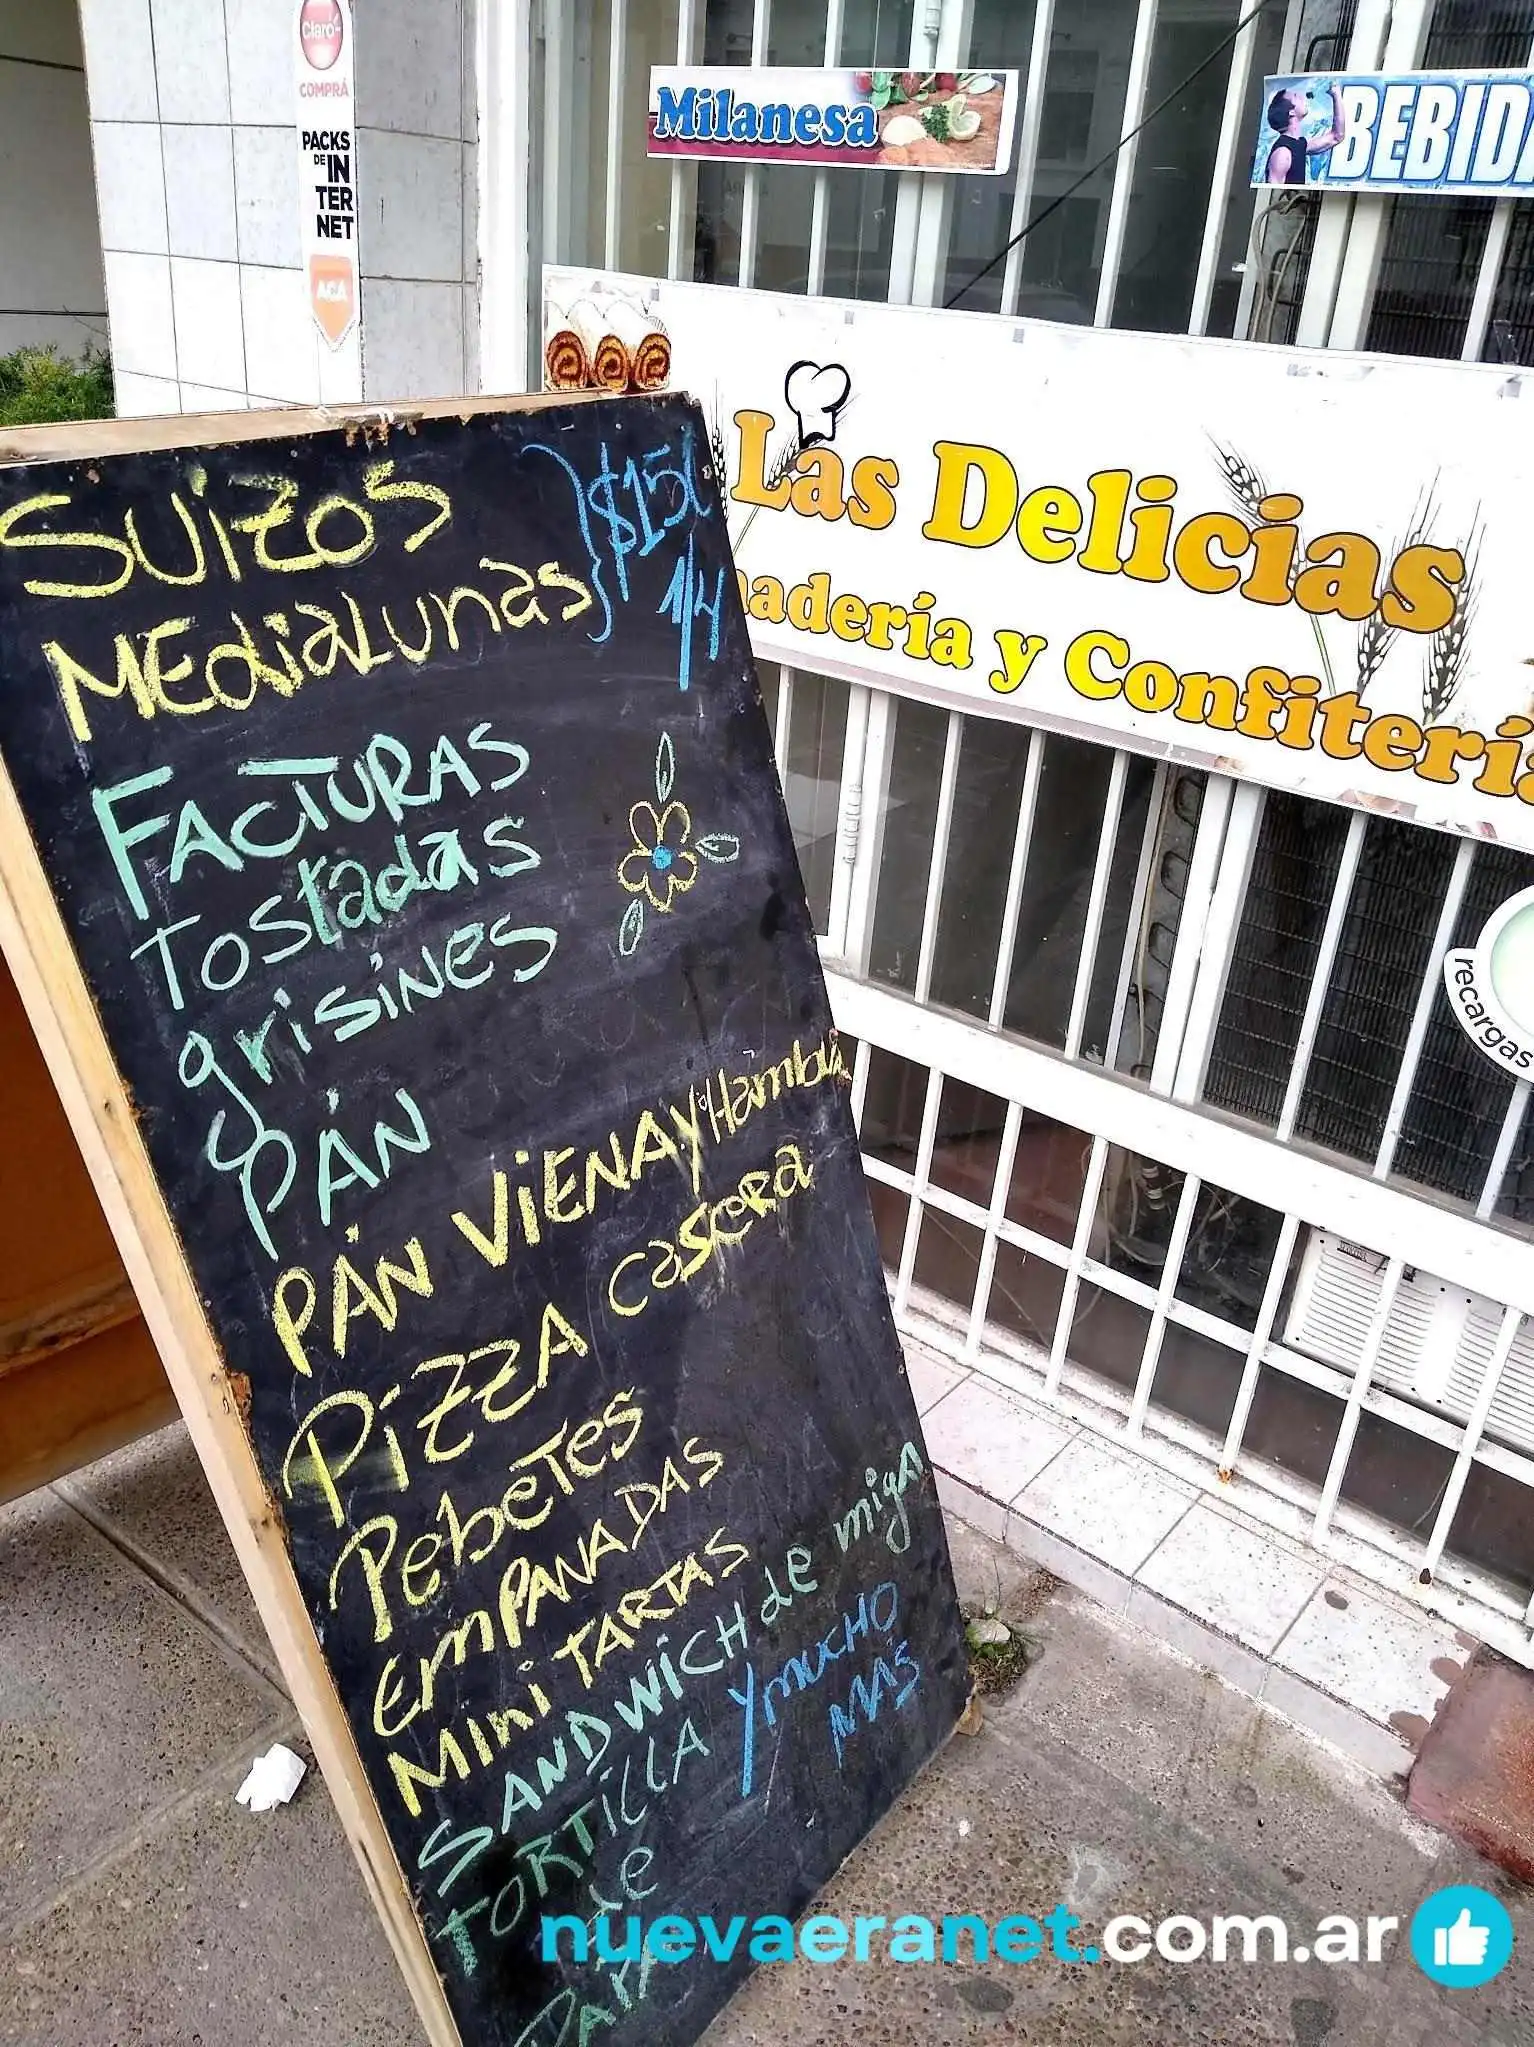 Claro-
COMPRÁ
PACKS
DE IN
TER
NET
ACA
Milanesa
BEBID
Las Delicias
nadería y Confitería
recargas
SUIZOS
MEdiaLunas
1/4
FACTURAS
Tostadas
grisines
PÁN
PÁN VIENA Y Hambu
PIZZA casera
Pebetes
EmPANADAS
Mini TARTAS
SANDWICH de miga
TORTILLA Y MUCHO
MAS
de
nuevaeranet.com.ar